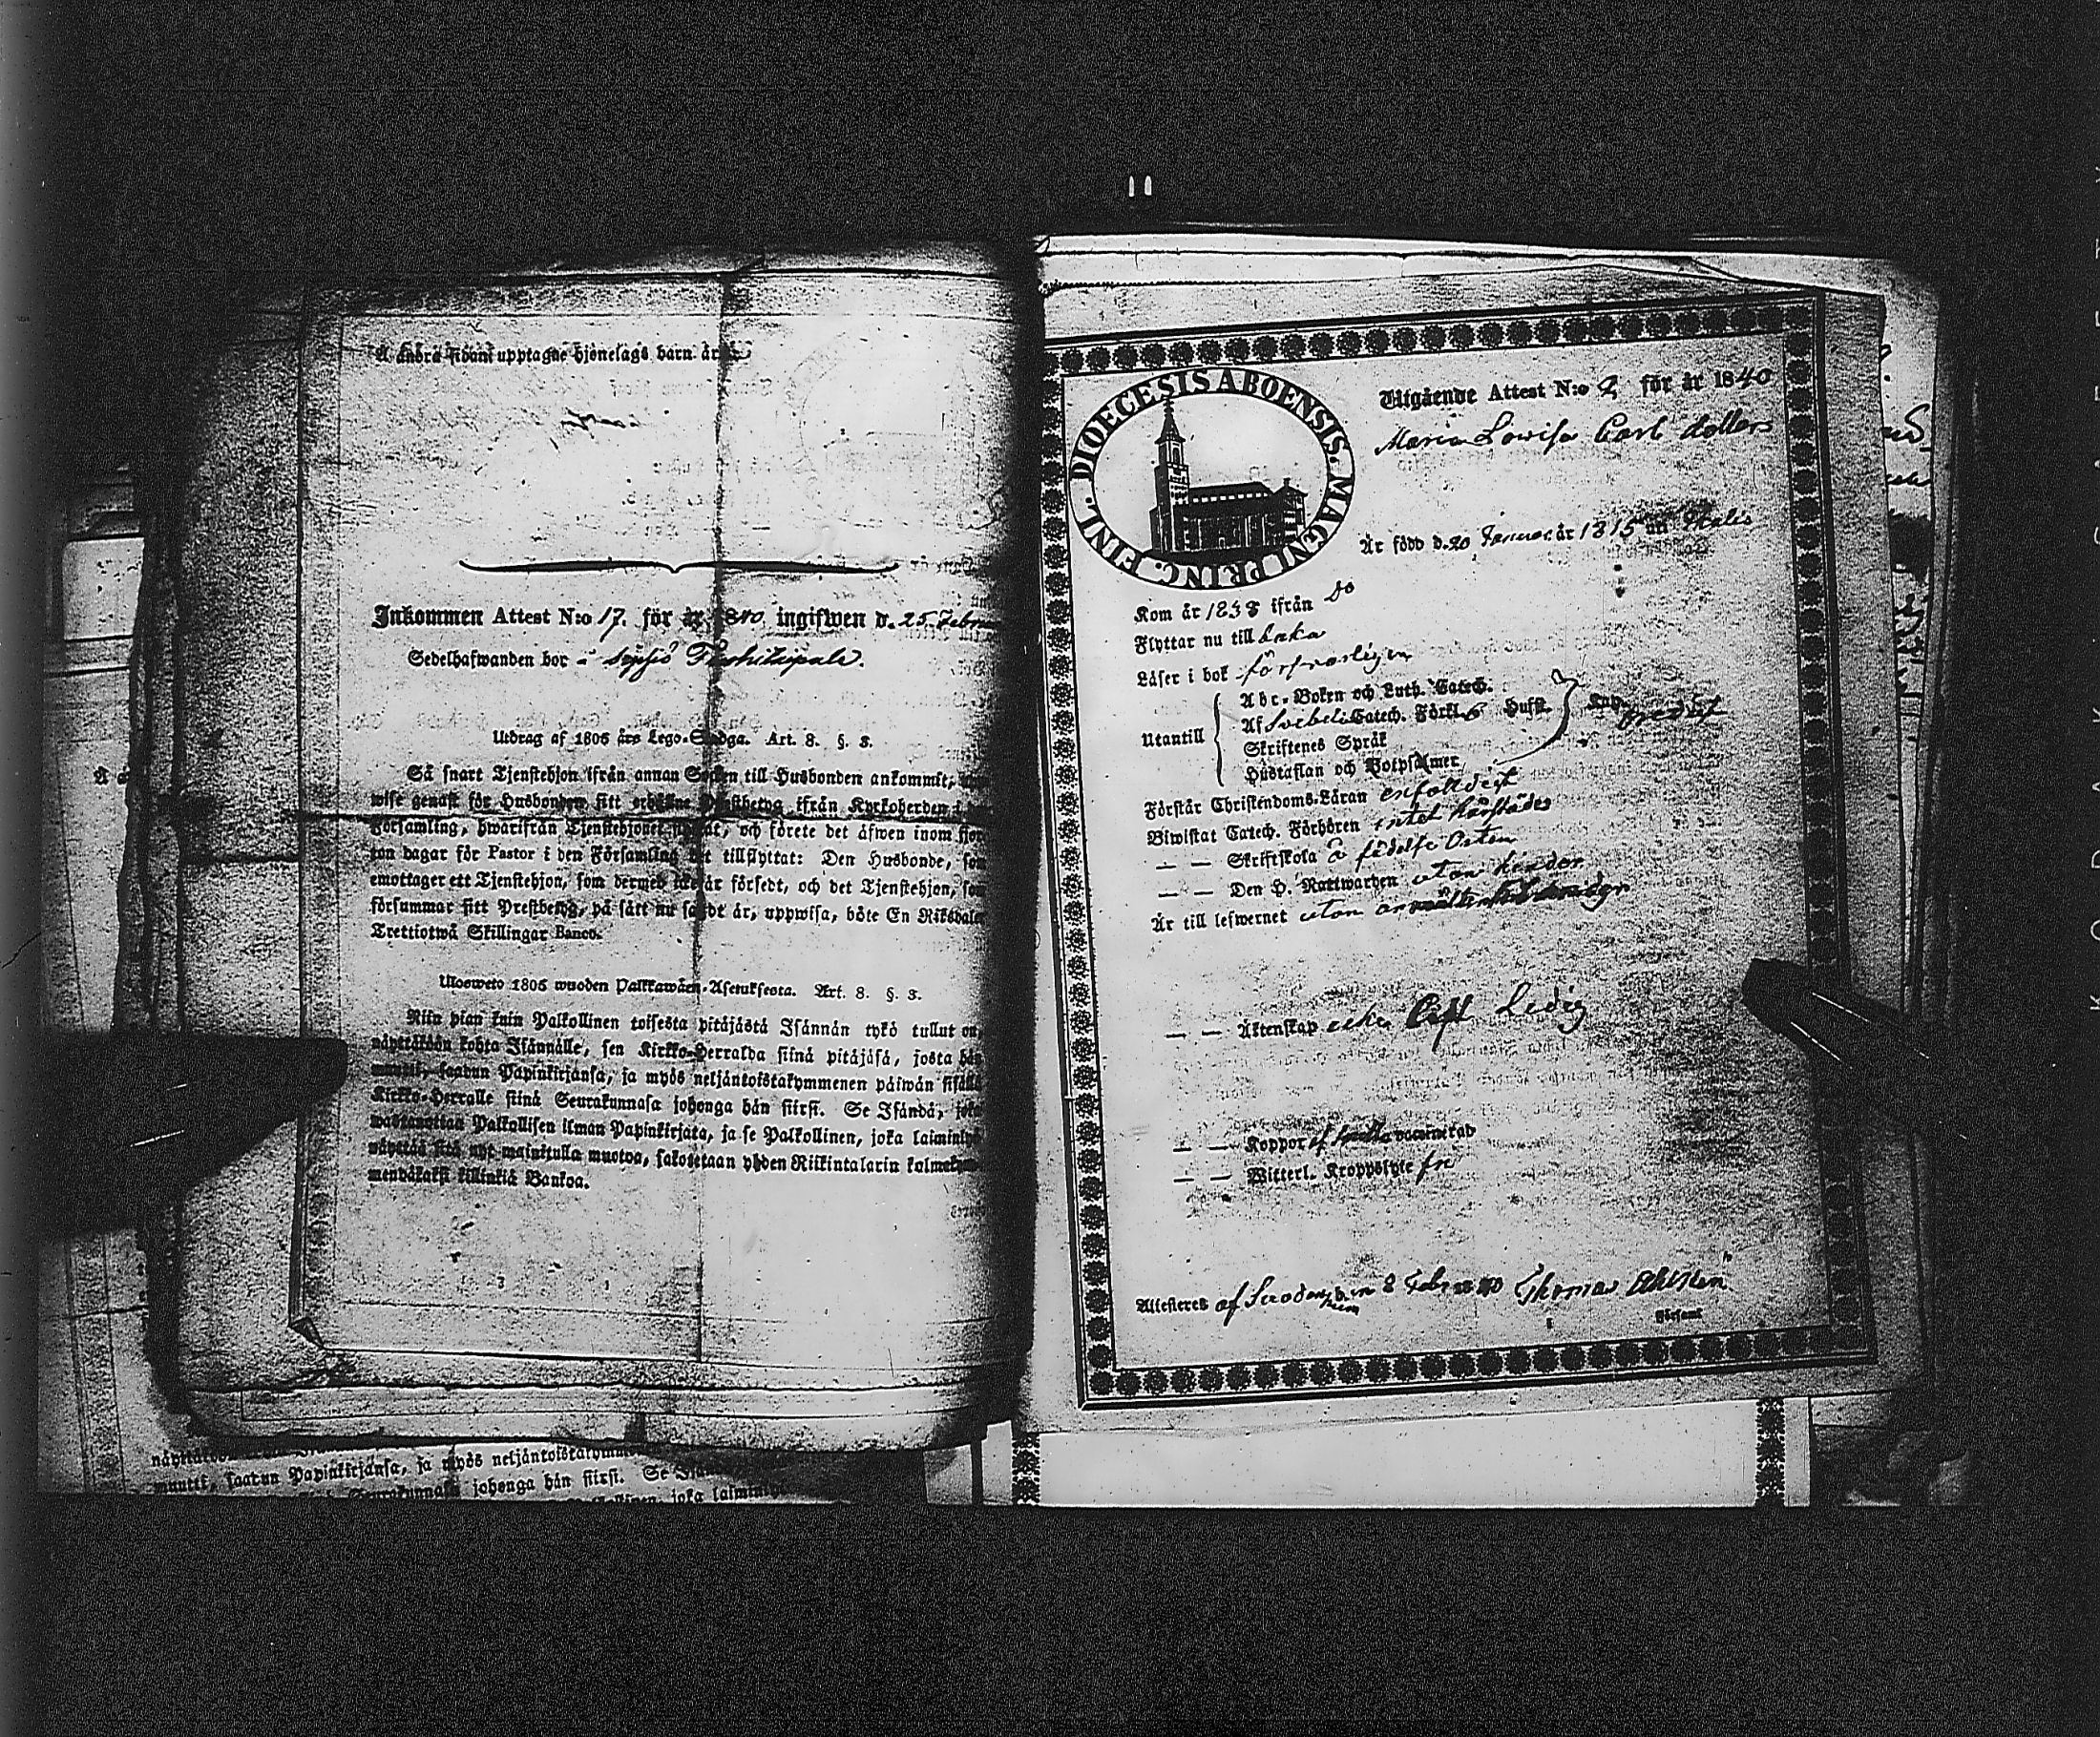 Å andra sidan upptagne hjonelags barn är
Inkommen Attest N:o 17. för år 1840 ingifwen d. 25. Febru
Sedelhafwanden bor i
Utdrag af 1805 års Lego-Stadga. Art. 8. §. 3.
Så snart Tjenstehjon ifrån annan Socken till Husbonden ankommit,
wise genast för Husbonden sitt erhållne Prestbetyg ifrån Kyrkoherden i
Församling, hwarifrån Tjenstehjonet flyttat, och förete det äfwen inom fjor-
ton dagar för Pastor i den Församling det tillflyttat: Den Husbonde, som
emottager ett Tjenstehjon, som dermed icke är försedt, och det Tjenstehjon, som
försummar sitt Prestbetyg, på sätt nu sagdt är, uppwisa, böte En Riksdaler
Trettiotwå Skillingar Banco.
Ulosweto 1805 wuoden Palkkawäen-Asetuksesta. Art. 8. §. 3.
Niin pian kuin Palkollinen toisesta pitäjästä Isännän tykö tullut on,
näyttäköön kohta Isännälle, sen Kirkko-Herralda siinä pitäjäsä, josta hän
muutti, saatun Papinkirjansa, ja myös neljäntoistakymmenen päiwän sisällä
Kirkko-Herralle siinä Seurakunnasa johonga hän siirsi. Se Isändä, joka
wastanottaa Palkollisen ilman Papinkirjata, ja se Palkollinen, joka laiminlyö
näyttää sitä nyt mainitulla muotoa, sakotetaan yhden Riikintalarin kolmekym-
mendäkaksi killinkiä Bankoa.
muutti, saatun Papinkirjansa, ja myös neljäntoistakymm
Seurakunnasa johonga hän siirsi. Se Isän
joka laiminly
DIOECESIS ABOENSIS. MAGNI PRINC. FINL.
Utgående Attest N:o 2 för år 1840
Maria Lovisa Carl dotter
Är född d. 20 Januar. år 1815 uti
Kom år 1838 ifrån Do
Flyttar nu till
Läser i bok försvarligen
Utantill
Abc-Boken och Luth. Catech.
Af Svebelii Catech. Förkl. Hust.
Skriftenes Språk
Hustaflan och Botpsalmer
Förstår Christendoms-Läran enfaldigt
Biwistat Catech. Förhören intet härstädes
— — Skriftskola å födelse Orten
— — Den H. Nattwarden utan hinder
Är till lefwernet utan
— — Äktenskap Ledig
— — Koppor vaccinerad
— — Witterl. Kroppslyte fri
Attesteras af d. 8 Febr 1840 Thomas
Församl